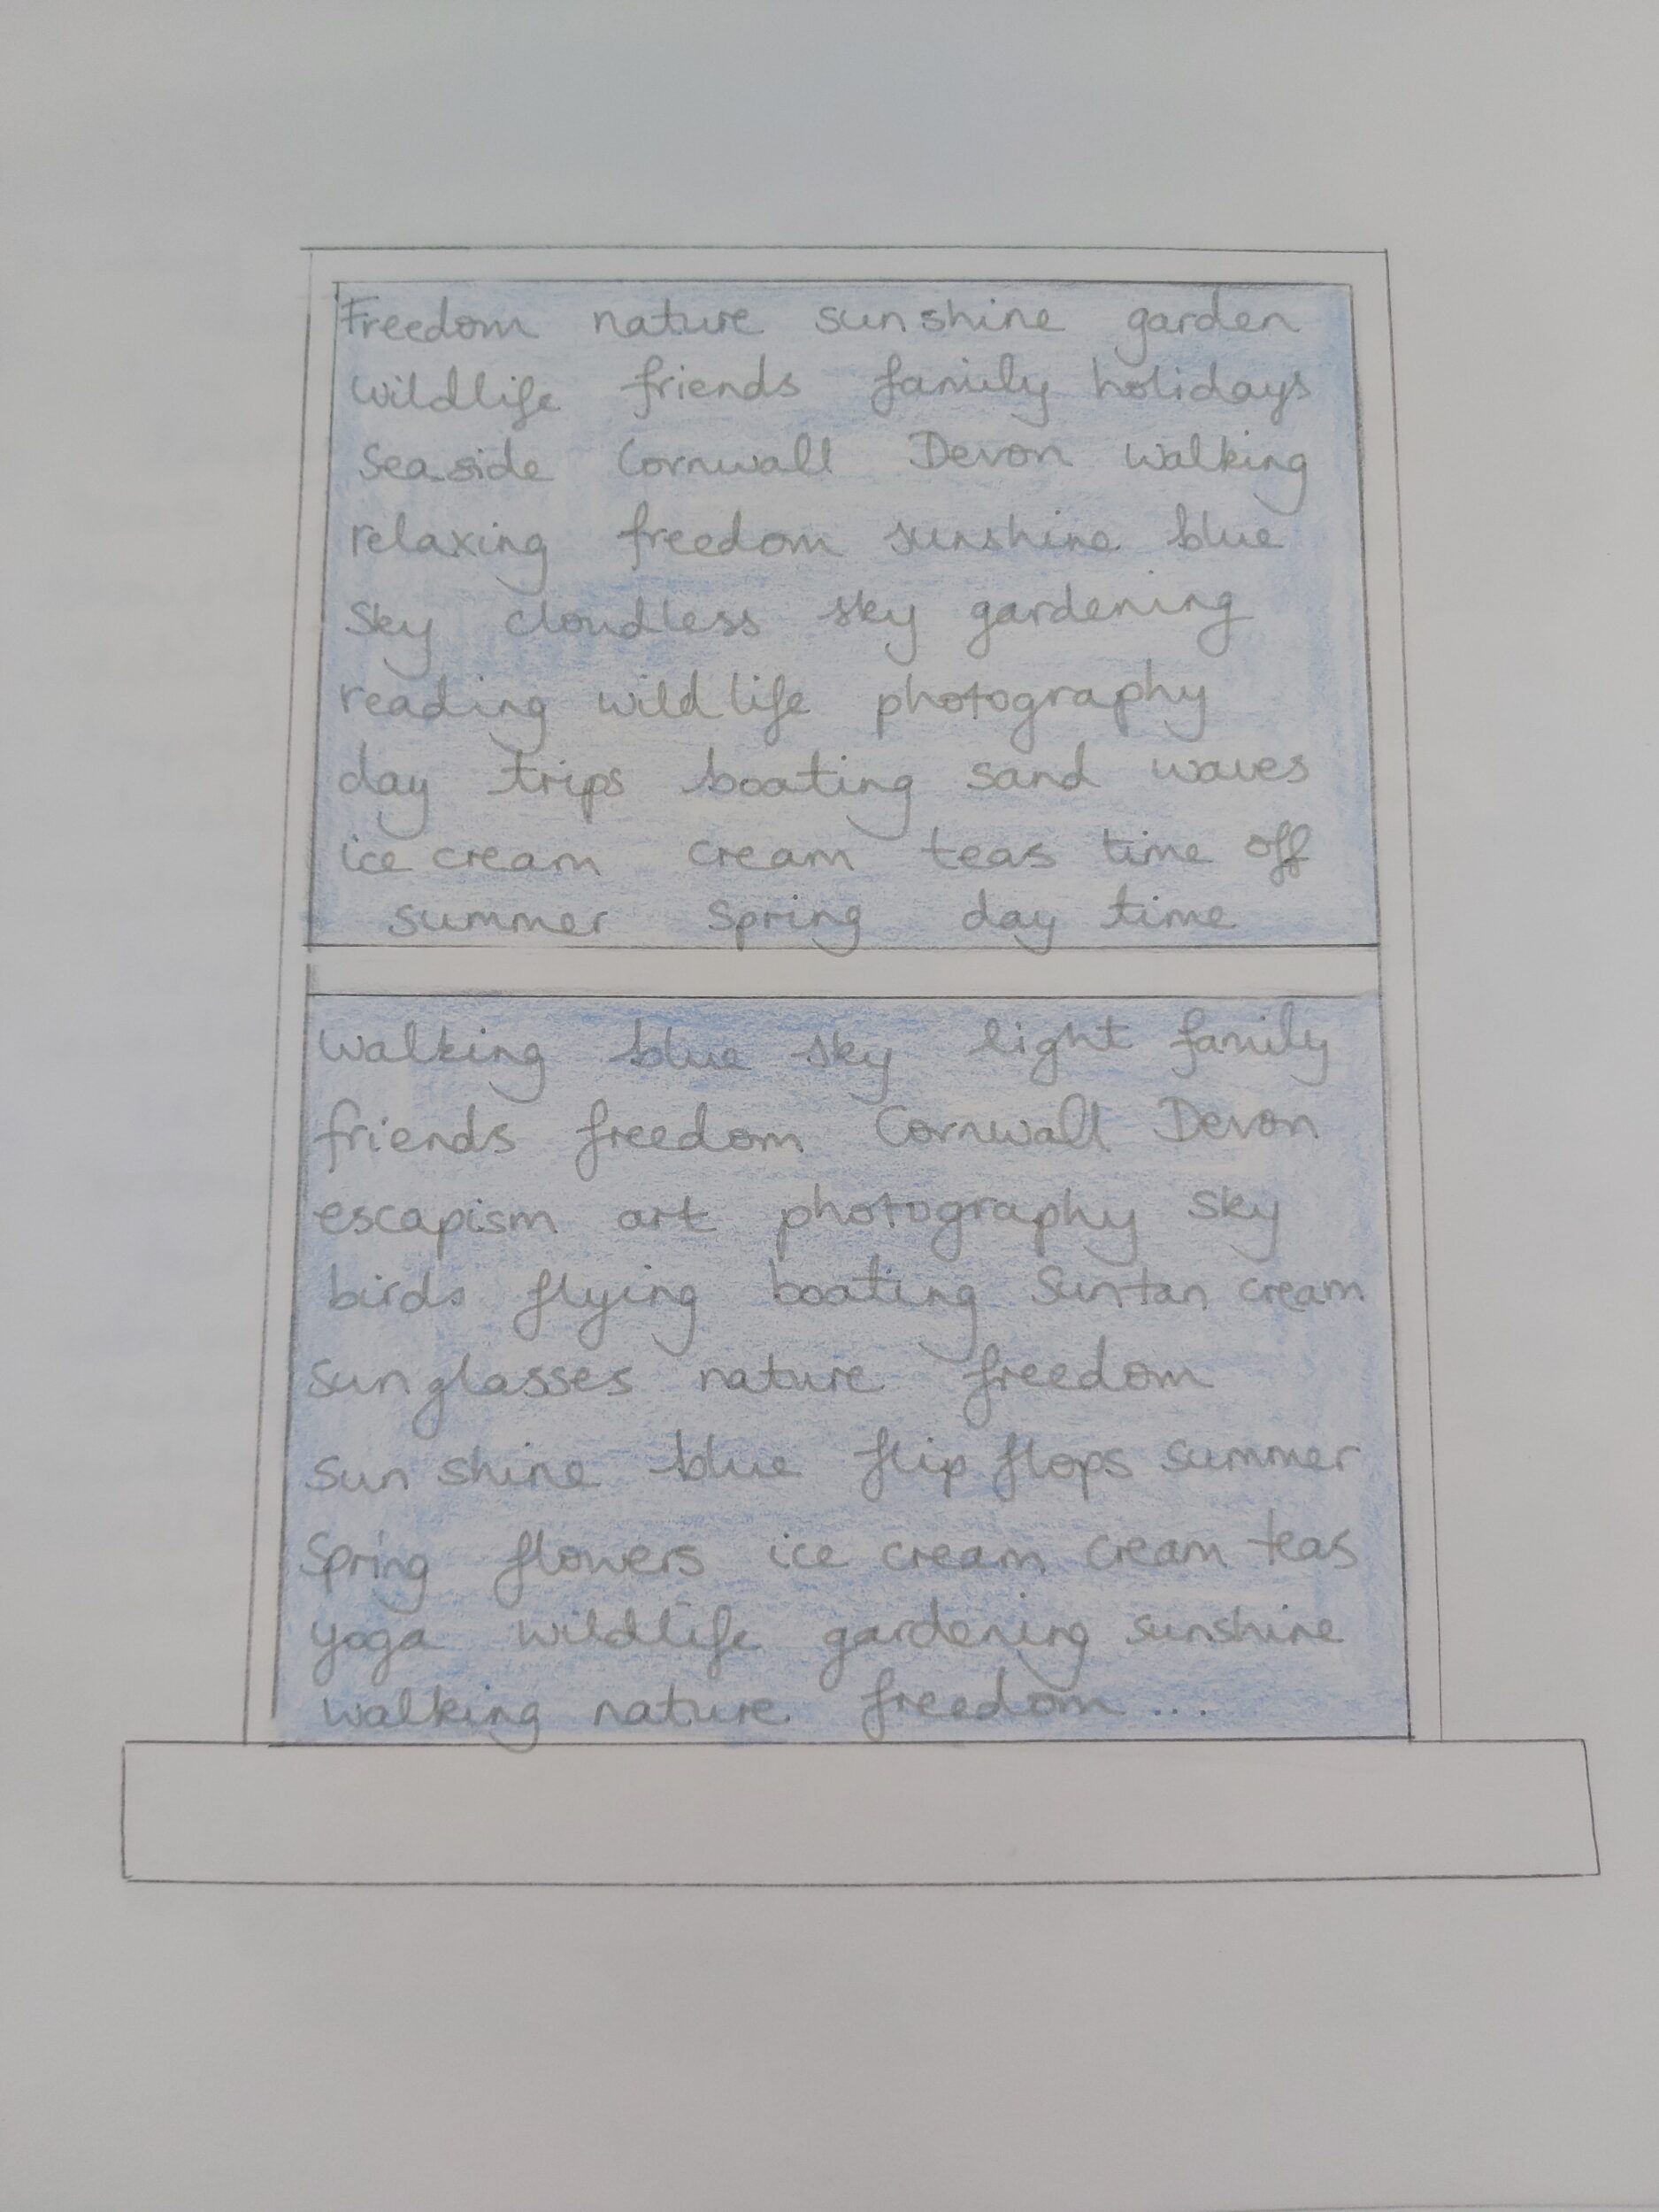 Freedom nature sunshine garden
wildlife friends family holidays
Seaside Cornwall Devon walking
relaxing freedom sunshine blue
Sky cloudless sky gardening
reading wildlife photography
day trips boating sand waves
ice cream cream teas time off
summer spring day time
walking blue sky light family
friends freedom Cornwall Devon
escapism art photography sky
birds flying boating suntan cream
sunglasses nature freedom
sunshine blue flip flops summer
Spring flowers ice cream cream teas
yoga wildlife gardening sunshine
walking nature freedom...